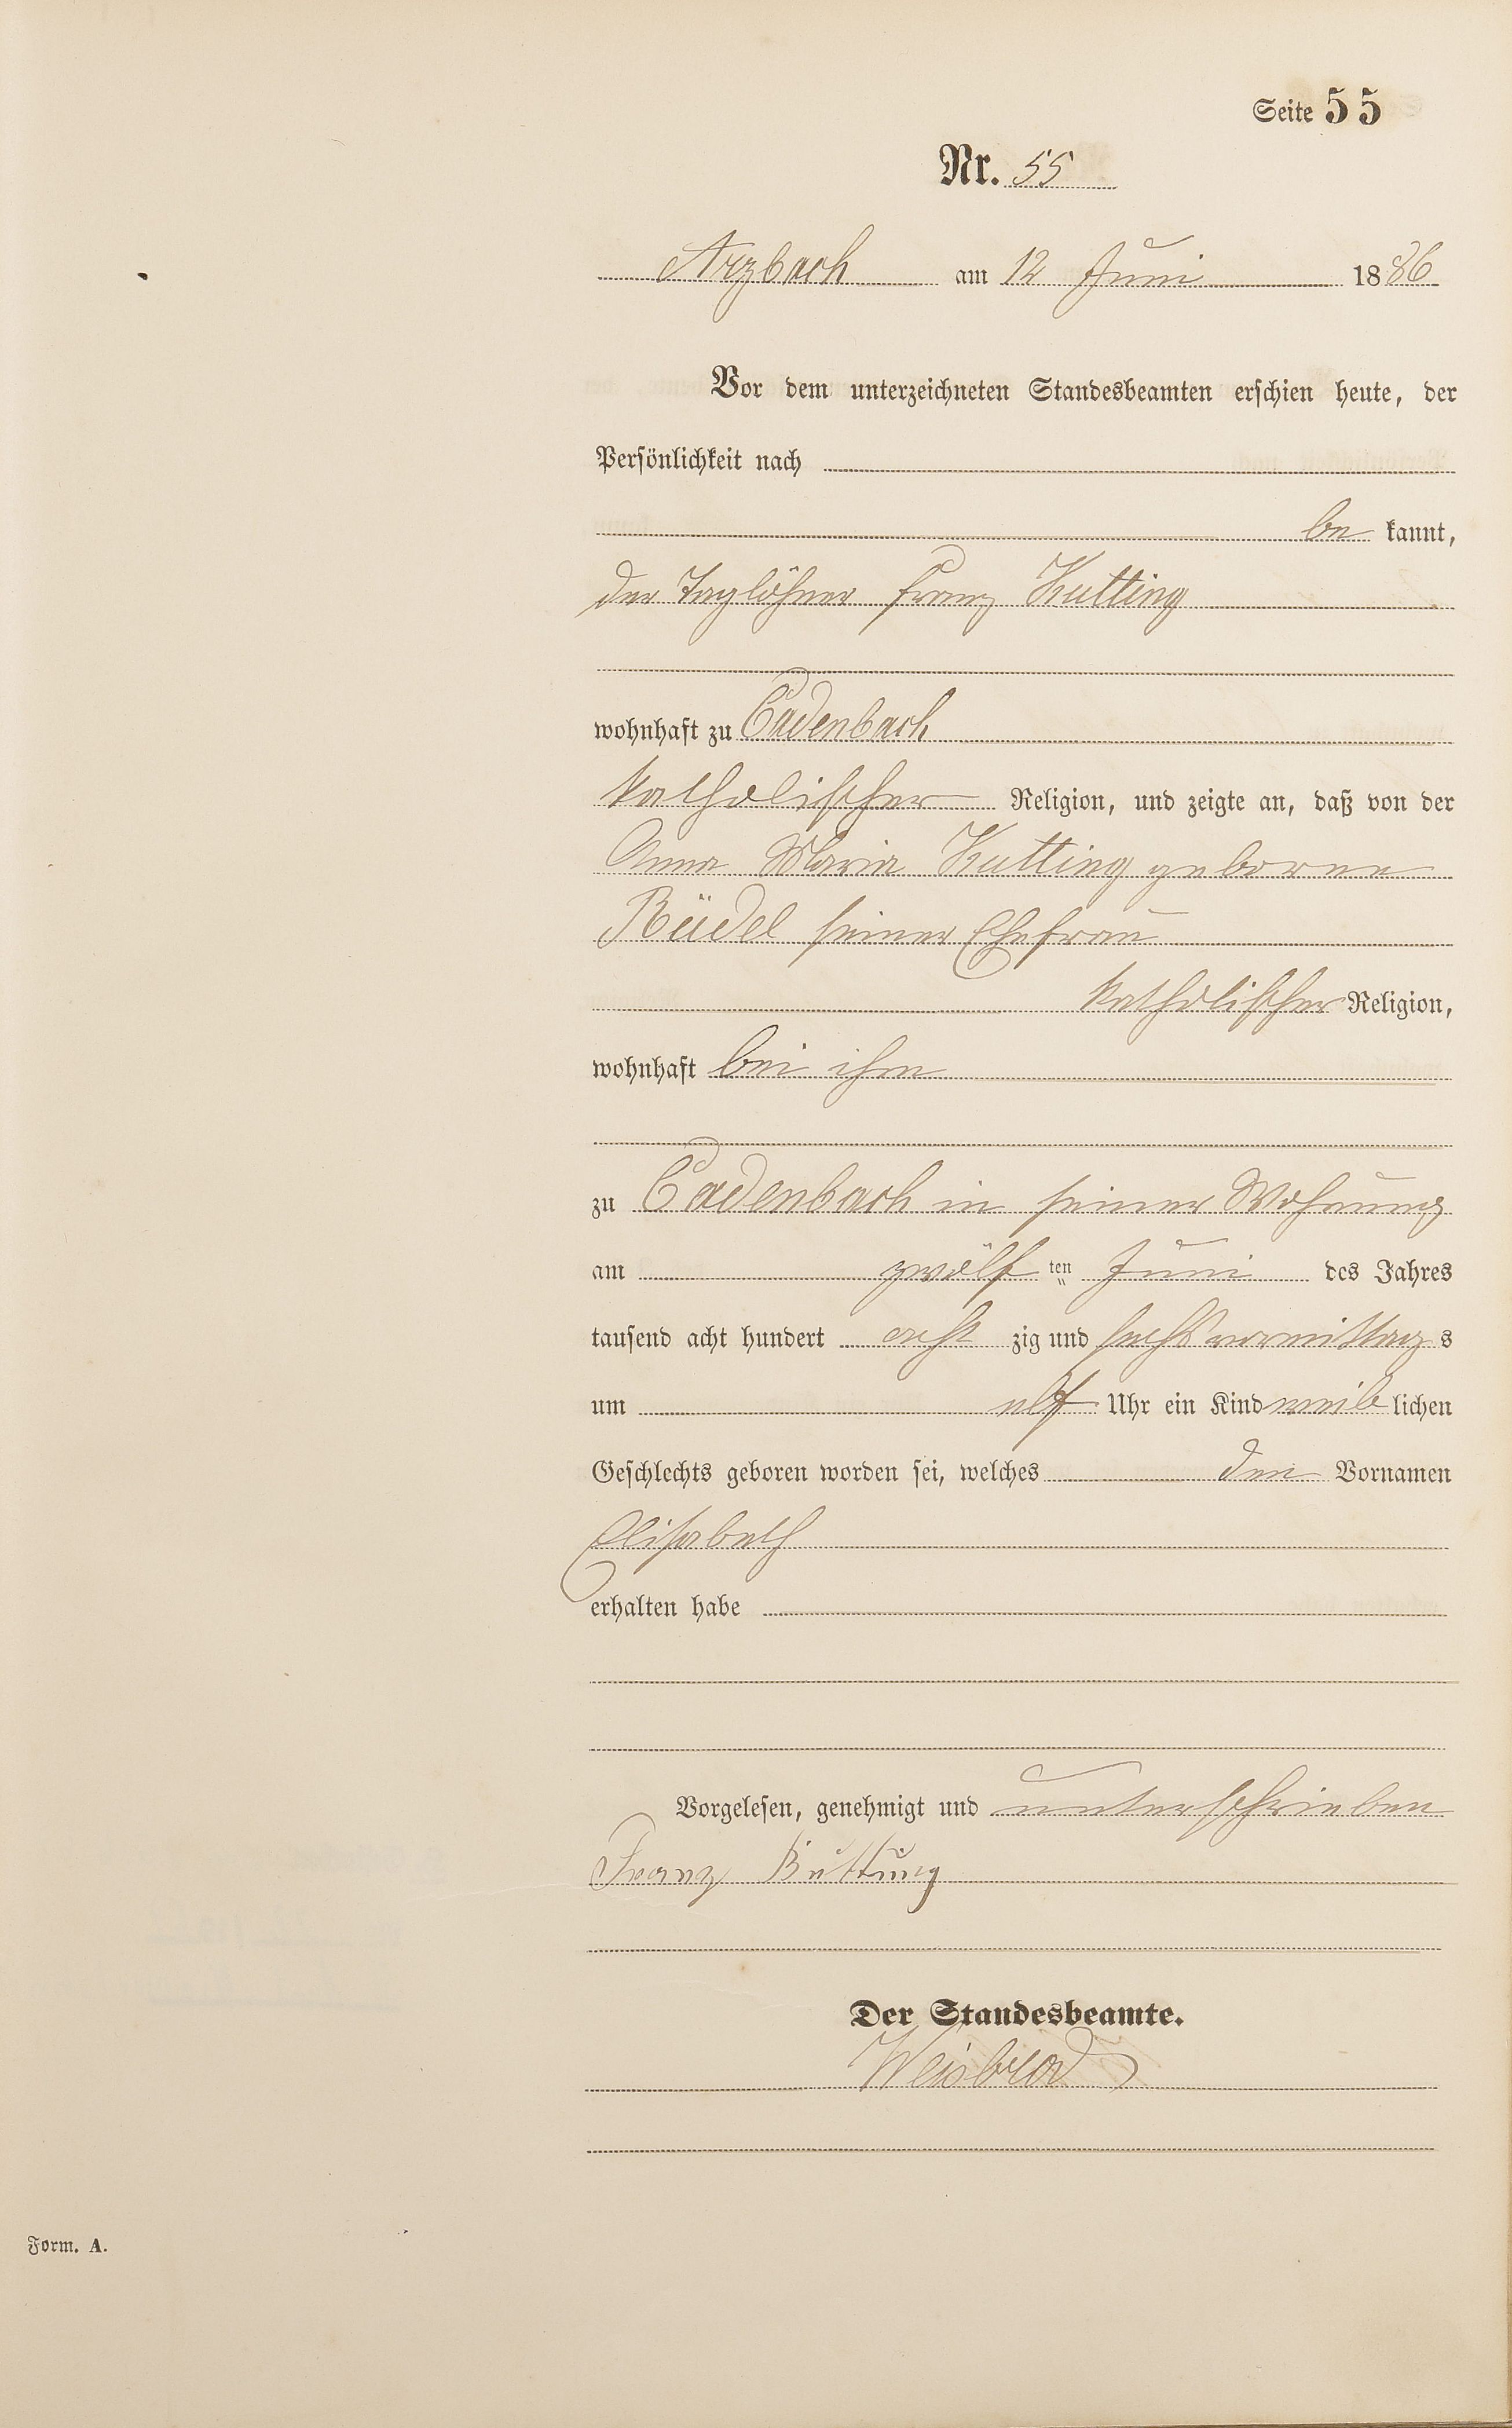 Seite 55
Nr. 55
Arzbach am 12 Juni 1886
Vor dem unterzeichneten Standesbeamten erschien heute, der
Persönlichkeit nach
be kannt,
der Taglöhner Franz Kutting
wohnhaft zu Cadenbach
katholischer Religion, und zeigte an, daß von der
Anna Maria Kutting geborne
Rüdel seiner Ehefrau
katholischer Religion,
wohnhaft bei ihm
zu Cadenbach in seiner Wohnung
am zwölf ten Juni des Jahres
tausend acht hundert acht zig und sechs vormittag s
um elf Uhr ein Kind weib lichen
Geschlechts geboren worden sei, welches den Vornamen
Elisabeth
erhalten habe
Vorgelesen, genehmigt und unterschrieben
Franz Kutting
Der Standesbeamte.
Weisbrod
Form. A.